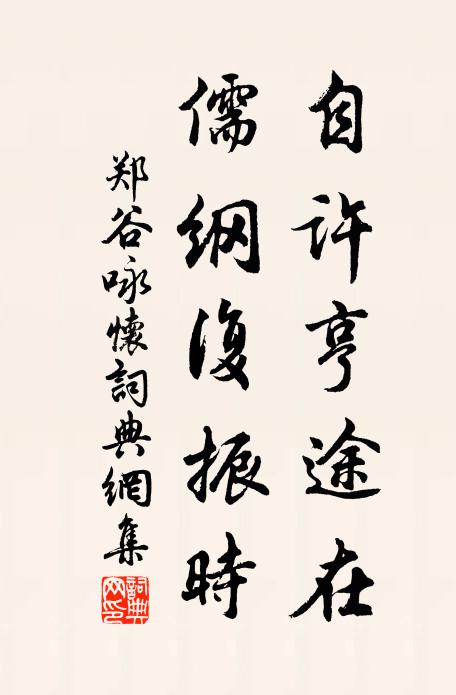 自许亨途在
儒纲复振時
郑谷咏懷詞典網集
詞典
网印